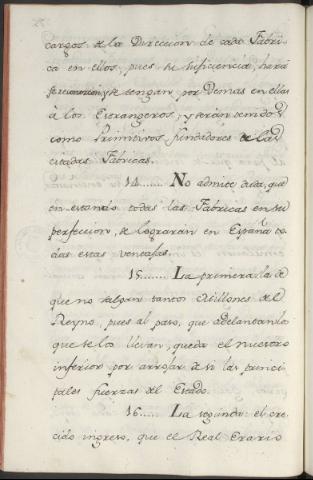 cargos de la Direccion de cada Fabri-
ca en ellos, pues su suficiencia, hará
se tengan por Demas en ellas
á los Extrangeros, y serán tenidos
como Primitivos fundadores de las
citadas Fabricas.
14...... No admite duda, que
en estando todas las Fabricas en su
perfeccion, se lograrán en España to-
das estas ventajas.
15...... La primera: la de
que no salgan tantos Millones del
Reyno, pues al paso, que adelantando
que se los llevan, queda el nuestro
inferior por arrojar de sí las princi-
pales fuerzas del Estado.
16...... La segunda: el cre-
cido ingreso, que el Real Erario